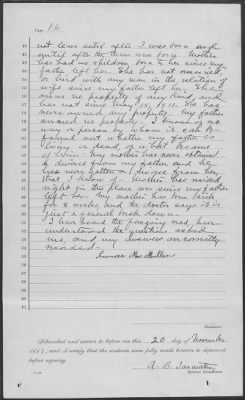 Page 16
not leave until after I was born and
until after the twins are born. Mother
has had no children born to her since my
father left her. She has not married,
or lived with any man in the relation of
wife since my father left her. She
has no property of any kind, and
has not since May 15, 1910. She has
never owned any property. My father
owned no property. I know of no
way or person by whom it can be
found out whether my father is
living or dead, or what became
of him. My mother has never obtained
a divorce from my father and he
has never gotten a divorce from her,
that I know of. Mother has resided
right in this place ever since my father
left her. My mother has been sick
for 8 weeks, and the doctor says it is
just a general break down.
I have heard the foregoing read, have
understood the questions asked
me, and my answers are correctly
recorded.
McMullen
Deponent.
Subscribed and sworn to before me this 20 day of November
and I certify that the contents were fully made known to deponent
before signing.
A. B. Tarwater
Special Examiner.